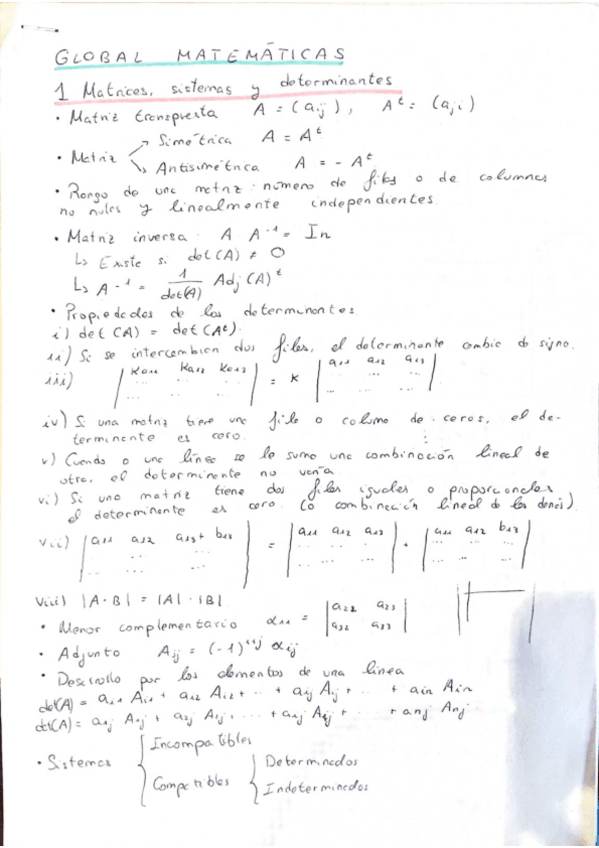 GLOBAL MATEMÁTICAS
1 Matrices, sistemas y determinantes
• Matriz transpuesta A = (aij), Aᵗ = (aji)
• Matriz → Simétrica A = Aᵗ
→ Antisimétrica A = - Aᵗ
• Rango de una matriz: número de filas o de columnas
no nulas y linealmente independientes.
• Matriz inversa: A A⁻¹ = In
↳ Existe si det(A) ≠ 0
↳ A⁻¹ = 1/det(A) Adj(A)ᵗ
• Propiedades de los determinantes
i) det (A) = det(Aᵗ).
ii) Si se intercambian dos filas, el determinante cambia de signo.
iii) | Ka11 Ka12 Ka13 ... ... | = K | a11 a12 a13 ... ... |
iv) Si una matriz tiene una fila o columna de ceros, el de-
terminante es cero.
v) Cuando a una línea se le suma una combinación lineal de
otra, el determinante no varía
vi) Si una matriz tiene dos filas iguales o proporcionales
el determinante es cero. (o combinación lineal de las demás)
vii) | a11 a12 a13 + b13 ... ... | = | a11 a12 a13 ... ... | + | a11 a12 b13 ... ... |
viii) |A·B| = |A|·|B|.
• Menor complementario α11 = | a22 a23 a32 a33 |
• Adjunto Aij = (-1)ⁱ⁺ʲ αij
• Desarrollo por los elementos de una línea
det(A) = ai1 Ai1 + ai2 Ai2 + ... + aij Aij + ... + ain Ain
det(A) = a1j A1j + a2j A2j + ... + aij Aij + ... + anj Anj
• Sistemas { Incompatibles
Compatibles { Determinados
Indeterminados